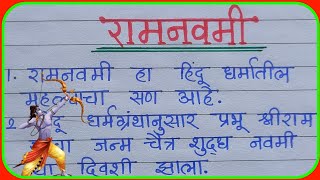 रामनवमी
1. रामनवमी हा हिंदू धर्मातील
सण आहे.
2. धर्मग्रंथानुसार प्रभू श्रीराम
जन्म चैत्र शुद्ध नवमी
दिवशी झाला.